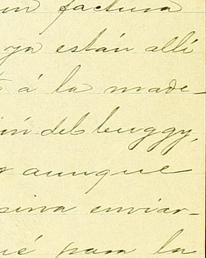 un factura
ya están allí
á la made-
del buggy,
aunque
enviar-
para la